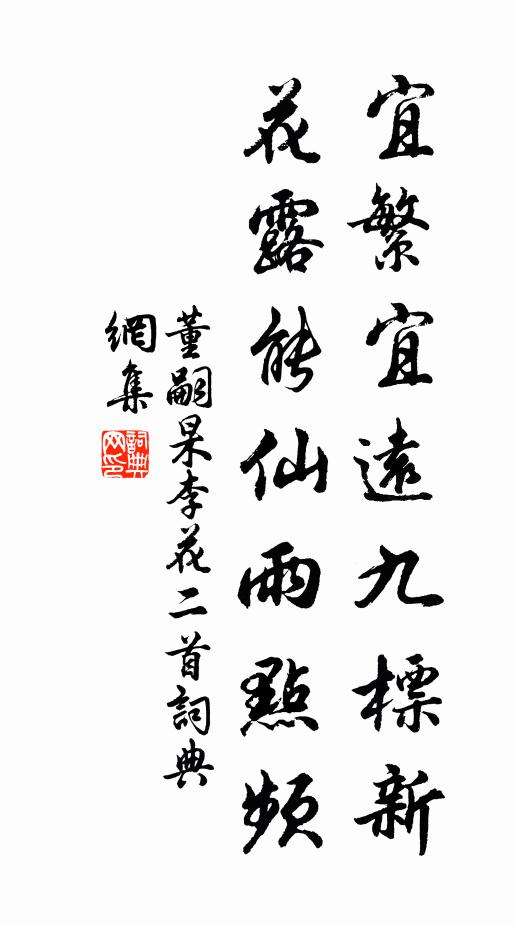 宜繁宜遠九標新
花露能仙雨點頻
董嗣杲李花二首詞典
網集
詞典網印